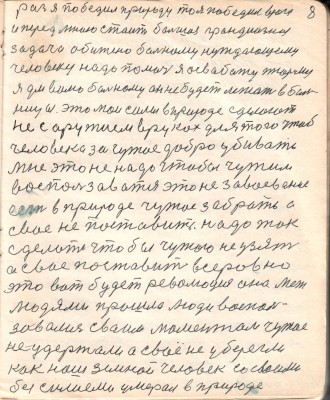 раз я победил природу то я победил врага
8
и передмною стоит большая грандиозная
задача обижено больному нуждающему
человеку надо помоч я освабажу тюрьму
я думаю больному он небудет лежать в боль-
ницы. это мои силы в природе сделают
не с аружием в руках для того чтоб
человека за чужое добро убивать
мне это не надо чтобы чужим
воспользаватя это не завоевание
есть в природе чужое забрать а
свае не поставить. надо так
сделать чтобы чужого не взять
а свае поставить всеровно
это вот будет революция она меж
людями прошла люди воспол-
завались сваим моментам чужое
не удержали а своё не уберегли
как наш земной человек со своими
был силыеми умерал в природе